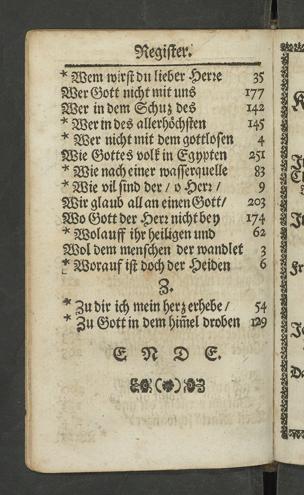 Register.
* Wem wirst du lieber Herre 35
Wer Gott nicht mit uns 177
Wer in dem Schuz des 142
* Wer in des allerhöchsten 145
* Wer nicht mit dem gottlosen 4
Wie Gottes volk in Egypten 251
* Wie nach einer wasserquelle 83
* Wie vil sind der / o Herr / 9
Wir glaub all an einen Gott/ 203
Wo Gott der Herr nicht bey 174
* Wolauff ihr heiligen und 62
Wol dem menschen der wandlet 3
* Worauf ist doch der Heiden 6
Z.
* Zu dir ich mein herz erhebe / 54
* Zu Gott in dem him̄el droben 129
E N D E.